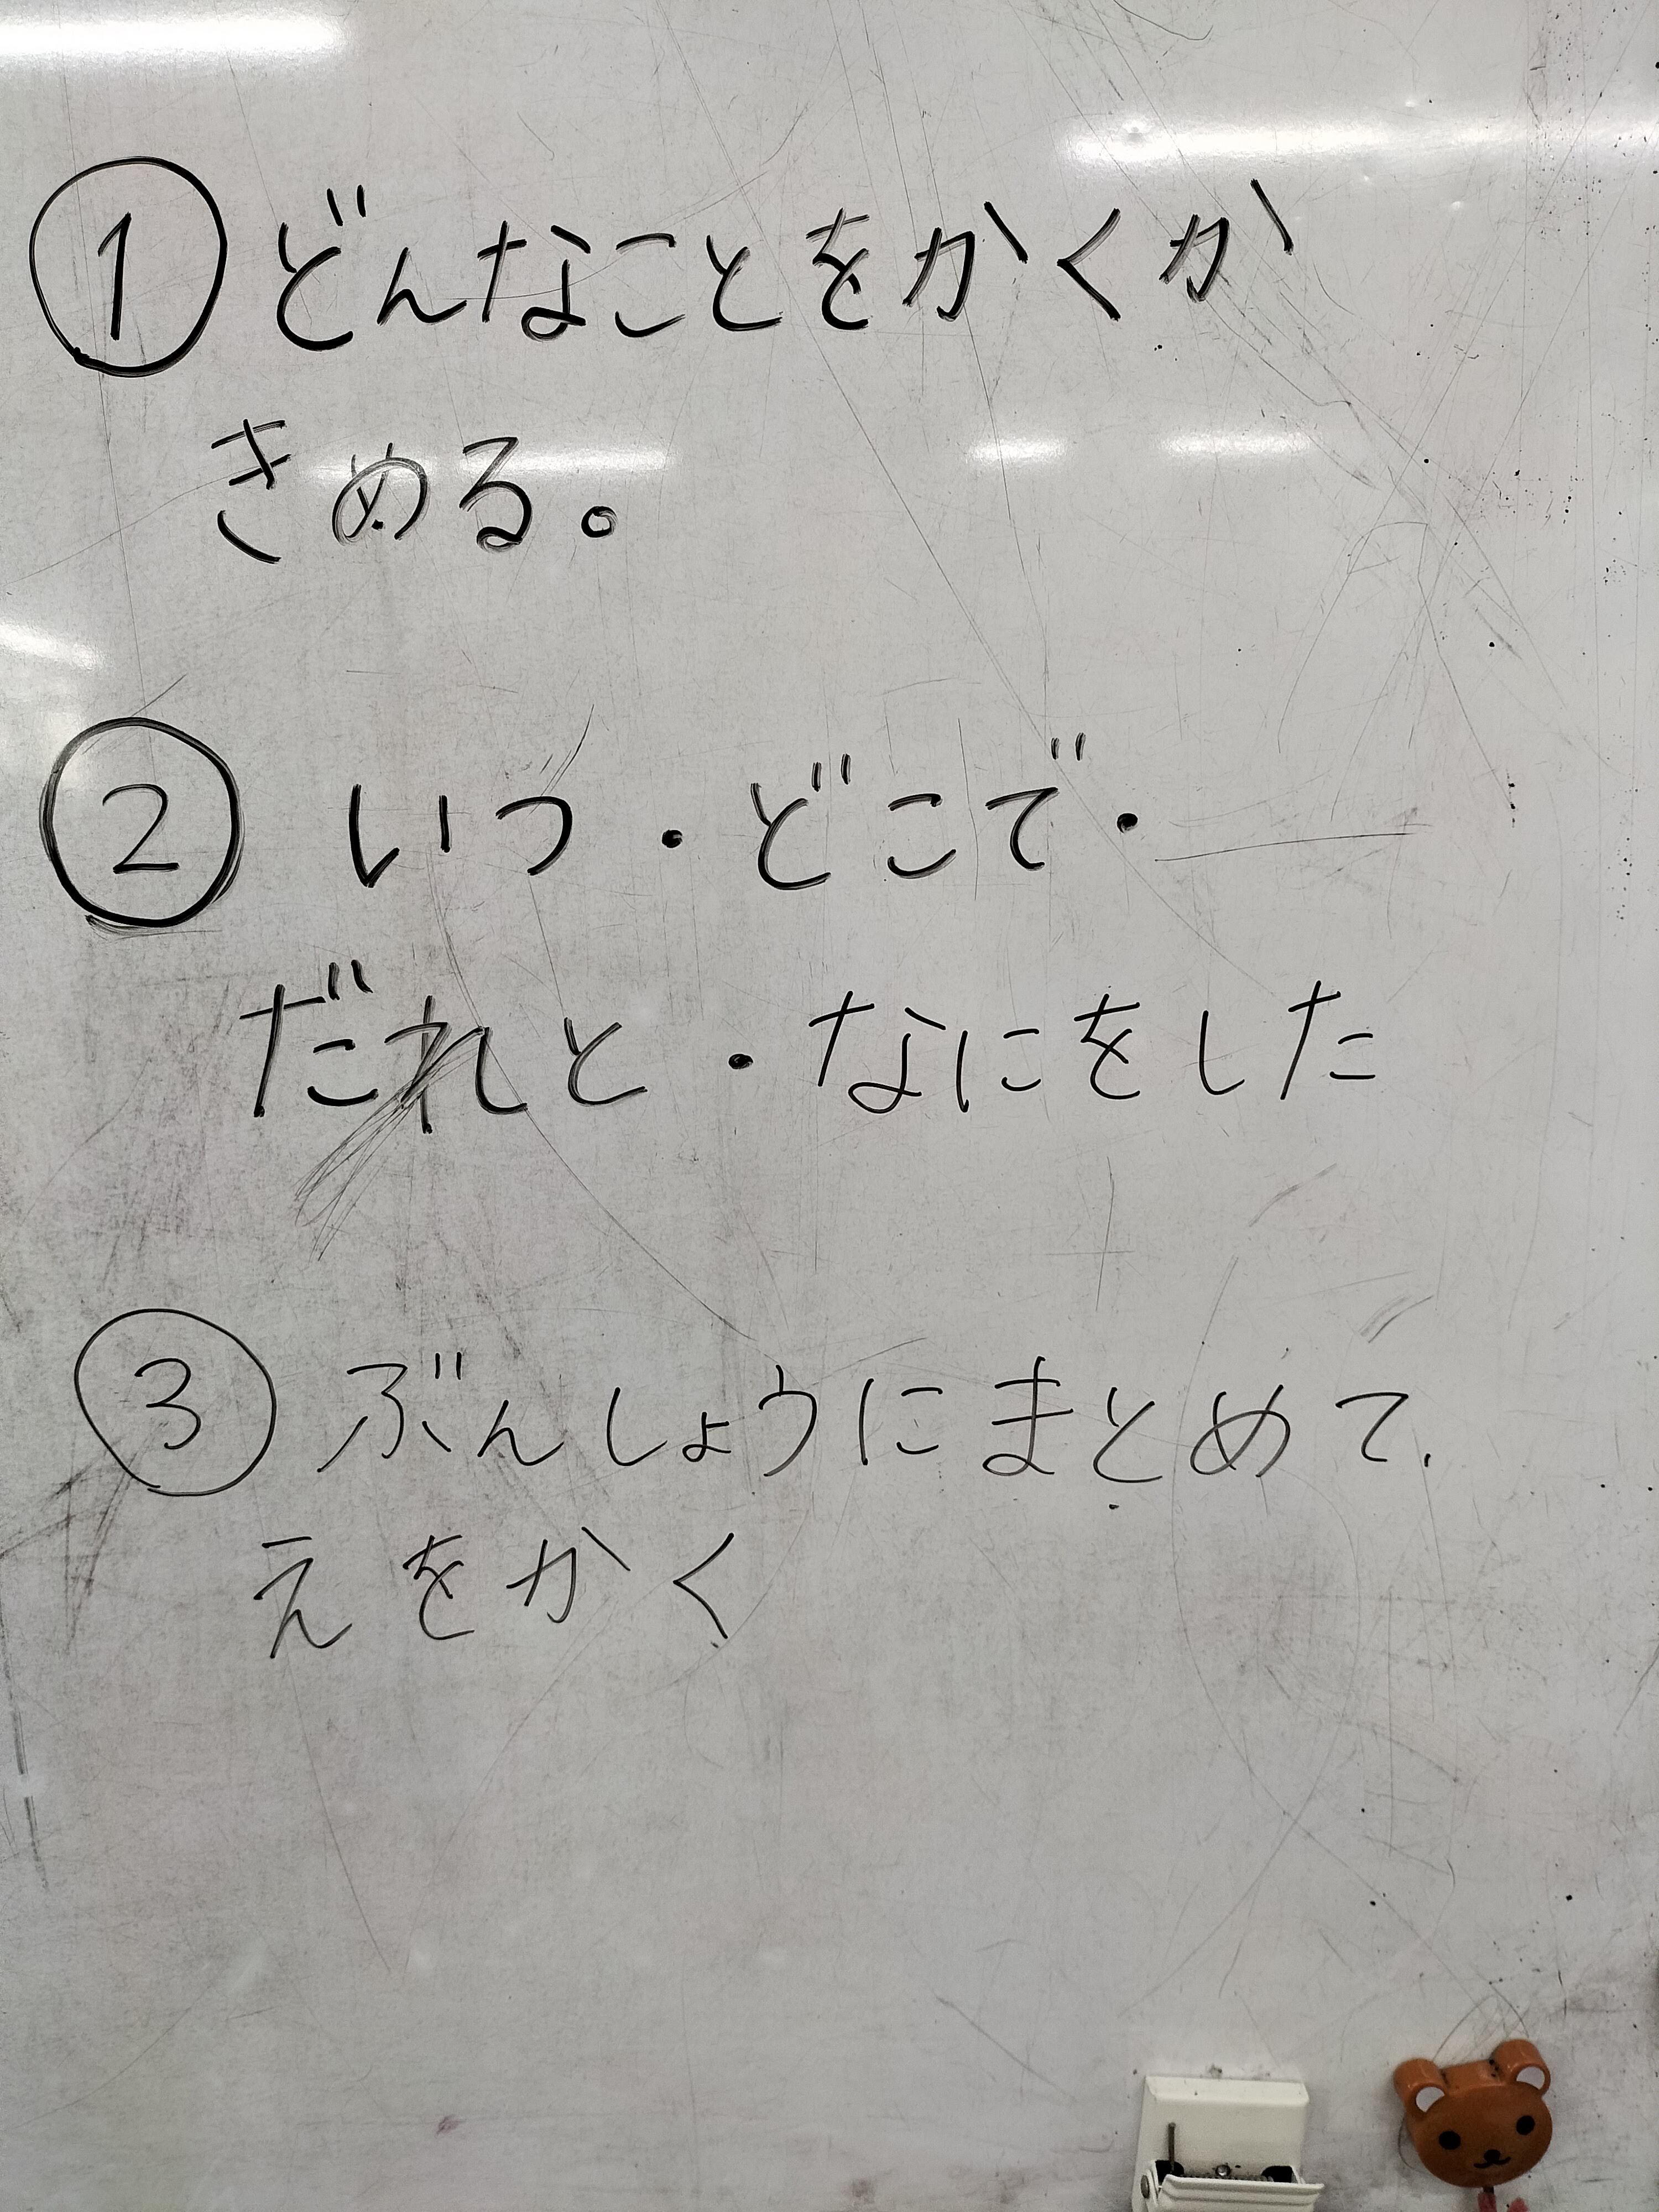 ① どんなことをかくか
きめる。
② いつ・どこで・
だれと・なにをした
③ ぶんしょうにまとめて、
えをかく